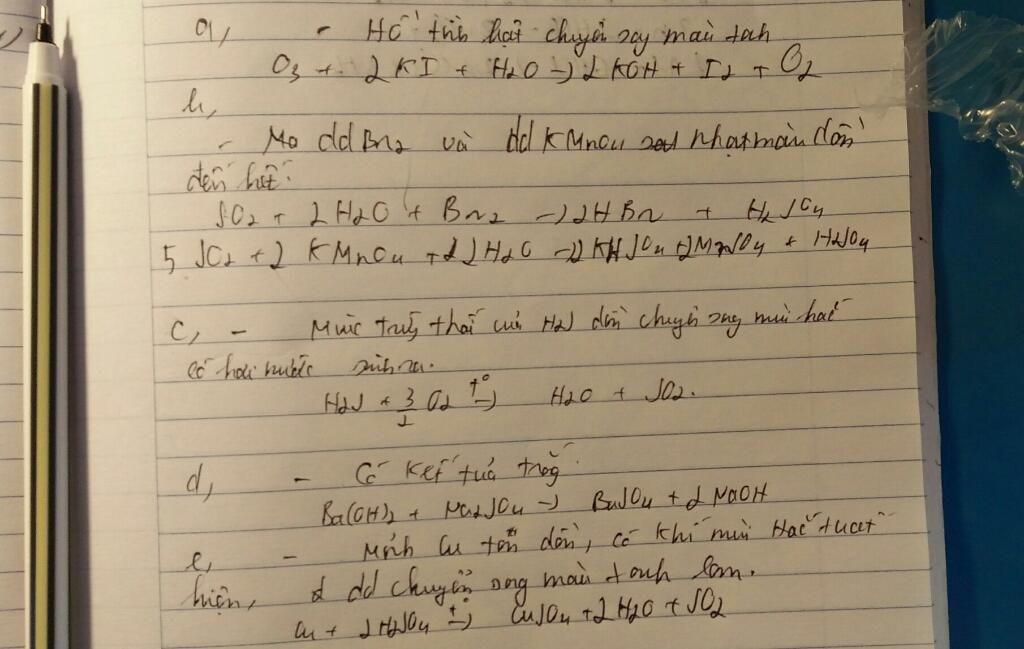 a, - Hồ tinh bột chuyển sang màu xanh
O3 + 2KI + H2O → 2KOH + I2 + O2
b,
- Mở dd Br2 và dd KMnO4 nhạt màu dần
đến hết.
SO2 + 2H2O + Br2 → 2HBr + H2SO4
5 SO2 + 2 KMnO4 + 2H2O → 2KHSO4 + 2MnSO4 + H2SO4
c, - Mùi trứng thối của H2S dần chuyển sang mùi hắc
có hơi nước sinh ra.
H2S + 3/2 O2 t° → H2O + SO2.
d, - Có kết tủa trắng.
Ba(OH)2 + Na2SO4 → BaSO4 + 2NaOH
e, - Mảnh Cu tan dần, có khí mùi hắc xuất
hiện, dd chuyển sang màu xanh lam.
Cu + 2H2SO4 t° → CuSO4 + 2H2O + SO2